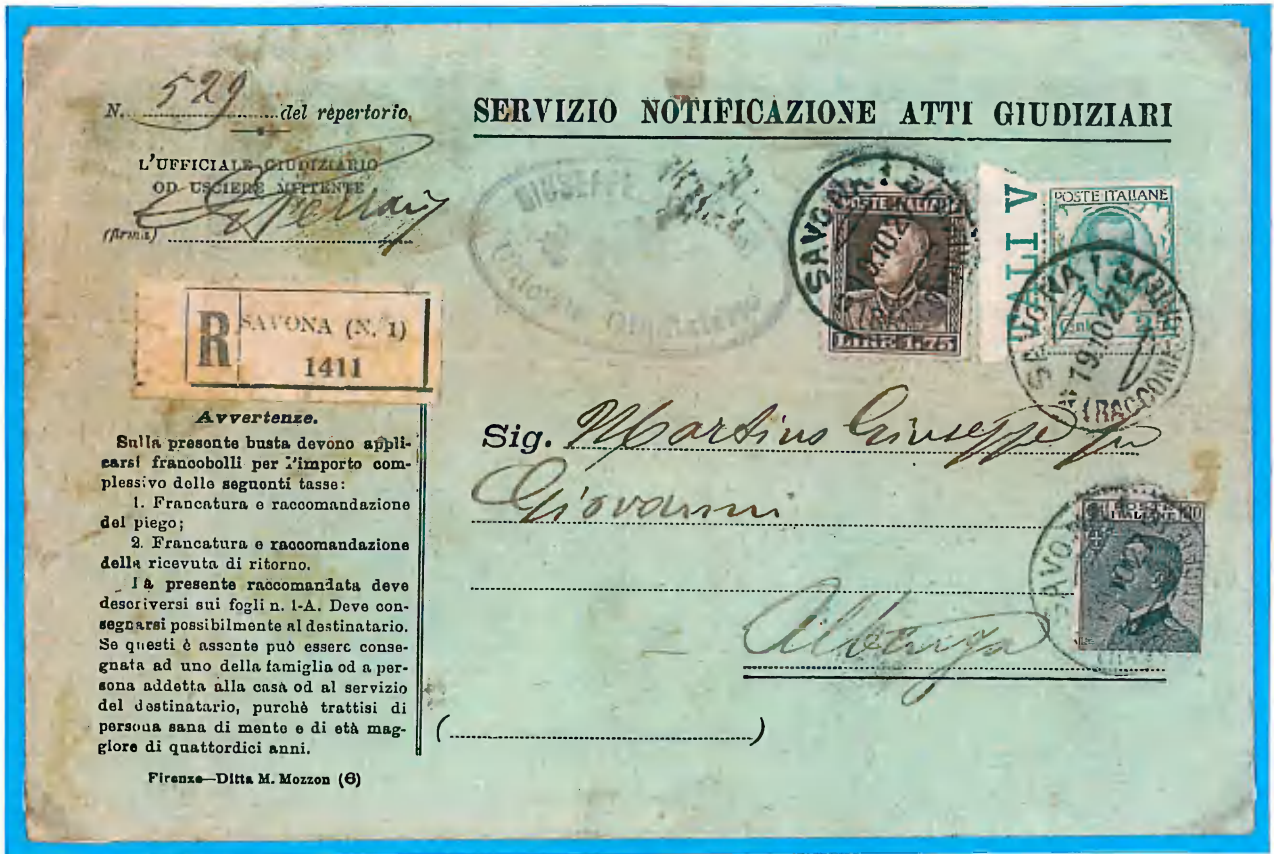 N. 529 del repertorio,
L'UFFICIALE GIUDIZIARIO
OD USCIERE MITTENTE
(firma)
R SAVONA (N. 1)
1411
Avvertenze.
Sulla presente busta devono appli-
carsi francobolli per l'importo com-
plessivo delle seguonti tasse:
1. Francatura e raccomandazione
del piego;
2. Francatura e raccomandazione
della ricevuta di ritorno.
La presente raccomandata deve
descriversi sui fogli n. 1-A. Deve con-
segnarsi possibilmente al destinatario.
Se questi è assente può essere conse-
gnata ad uno della famiglia od a per-
sona addetta alla casà od al servizio
del destinatario, purchè trattisi di
persona sana di mente e di età mag-
giore di quattordici anni.
Firenze—Ditta M. Mozzon (6)
SERVIZIO NOTIFICAZIONE ATTI GIUDIZIARI
GIUSEPPE
Ufficiale Giudiziario
POSTE ITALIANE
LIRE 1,75
SAVONA 1
ALI V
POSTE ITALIANE
Cent. 25
SAVONA 1
19.10.27
(RACCOM
Sig. Martino Giuseppe fu
Giovanni
Albenga
ITALIANE
SAVO
( )